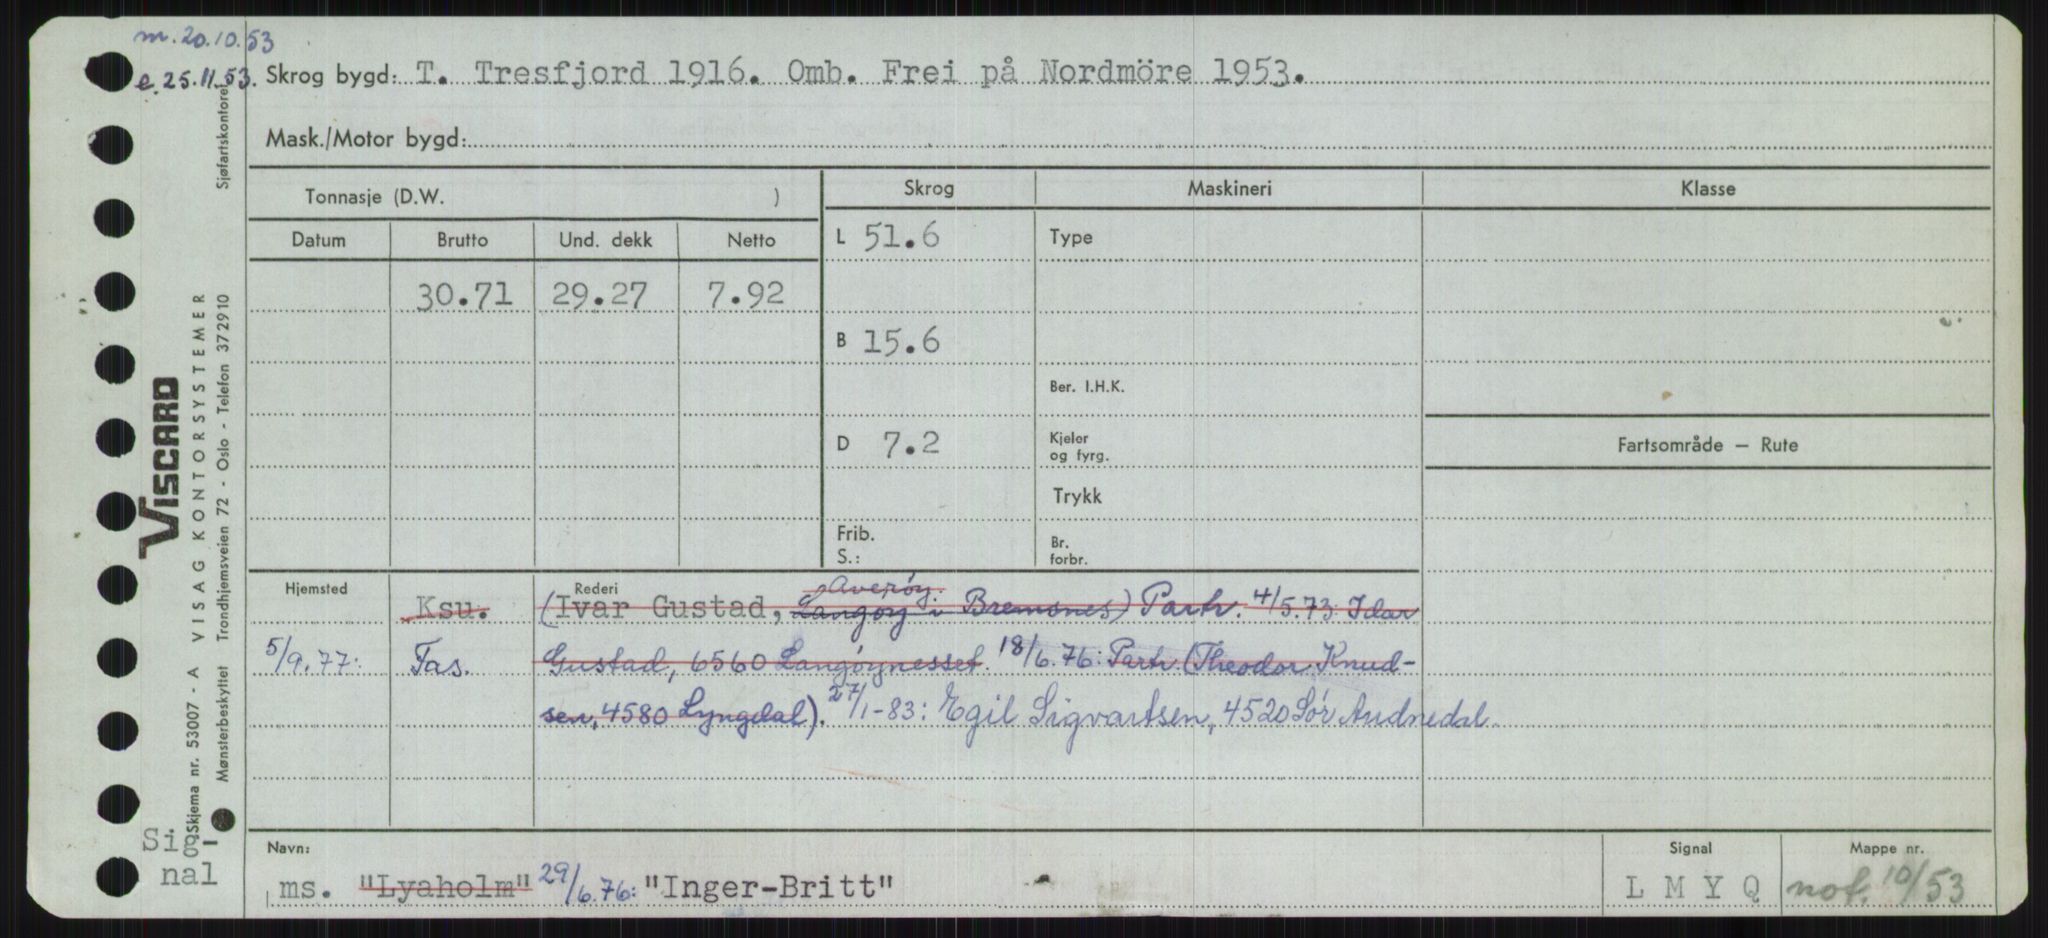 m. 20.10.53
e. 25.11.53.
Skrog bygd: T. Tresfjord 1916. Omb. Frei på Nordmöre 1953.
Mask./Motor bygd:
Tonnasje (D.W. )
Skrog Maskineri Klasse
Datum Brutto Und. dekk Netto
L 51.6 Type
30.71 29.27 7.92
B 15.6
Ber. I.H.K.
D 7.2 Kjeler og fyrg.
Fartsområde — Rute
Trykk
Frib. S.: Br. forbr.
Hjemsted Rederi Averöy.
Ksu. (Ivar Gustad, Langöy i Bremsnes) Partr. 4/5.73: Idar
5/9.77: Fas. Gustad, 6560 Langöynesset. 18/6.76: Partr. (Theodor Knud-
sen, 4580 Lyngdal). 27/1-83: Egil Sigvartsen, 4520 Sör Audnedal.
Navn: Signal Mappe nr.
ms. "Lyaholm" 29/6.76: "Inger-Britt" L M Y Q not. 10/53
Sig-
nal
VISCARD
Skjema nr. 53007 - A VISAG KONTORSYSTEMER
Mønsterbeskyttet Trondhjemsveien 72 - Oslo - Telefon 372910
Sjøfartskontoret